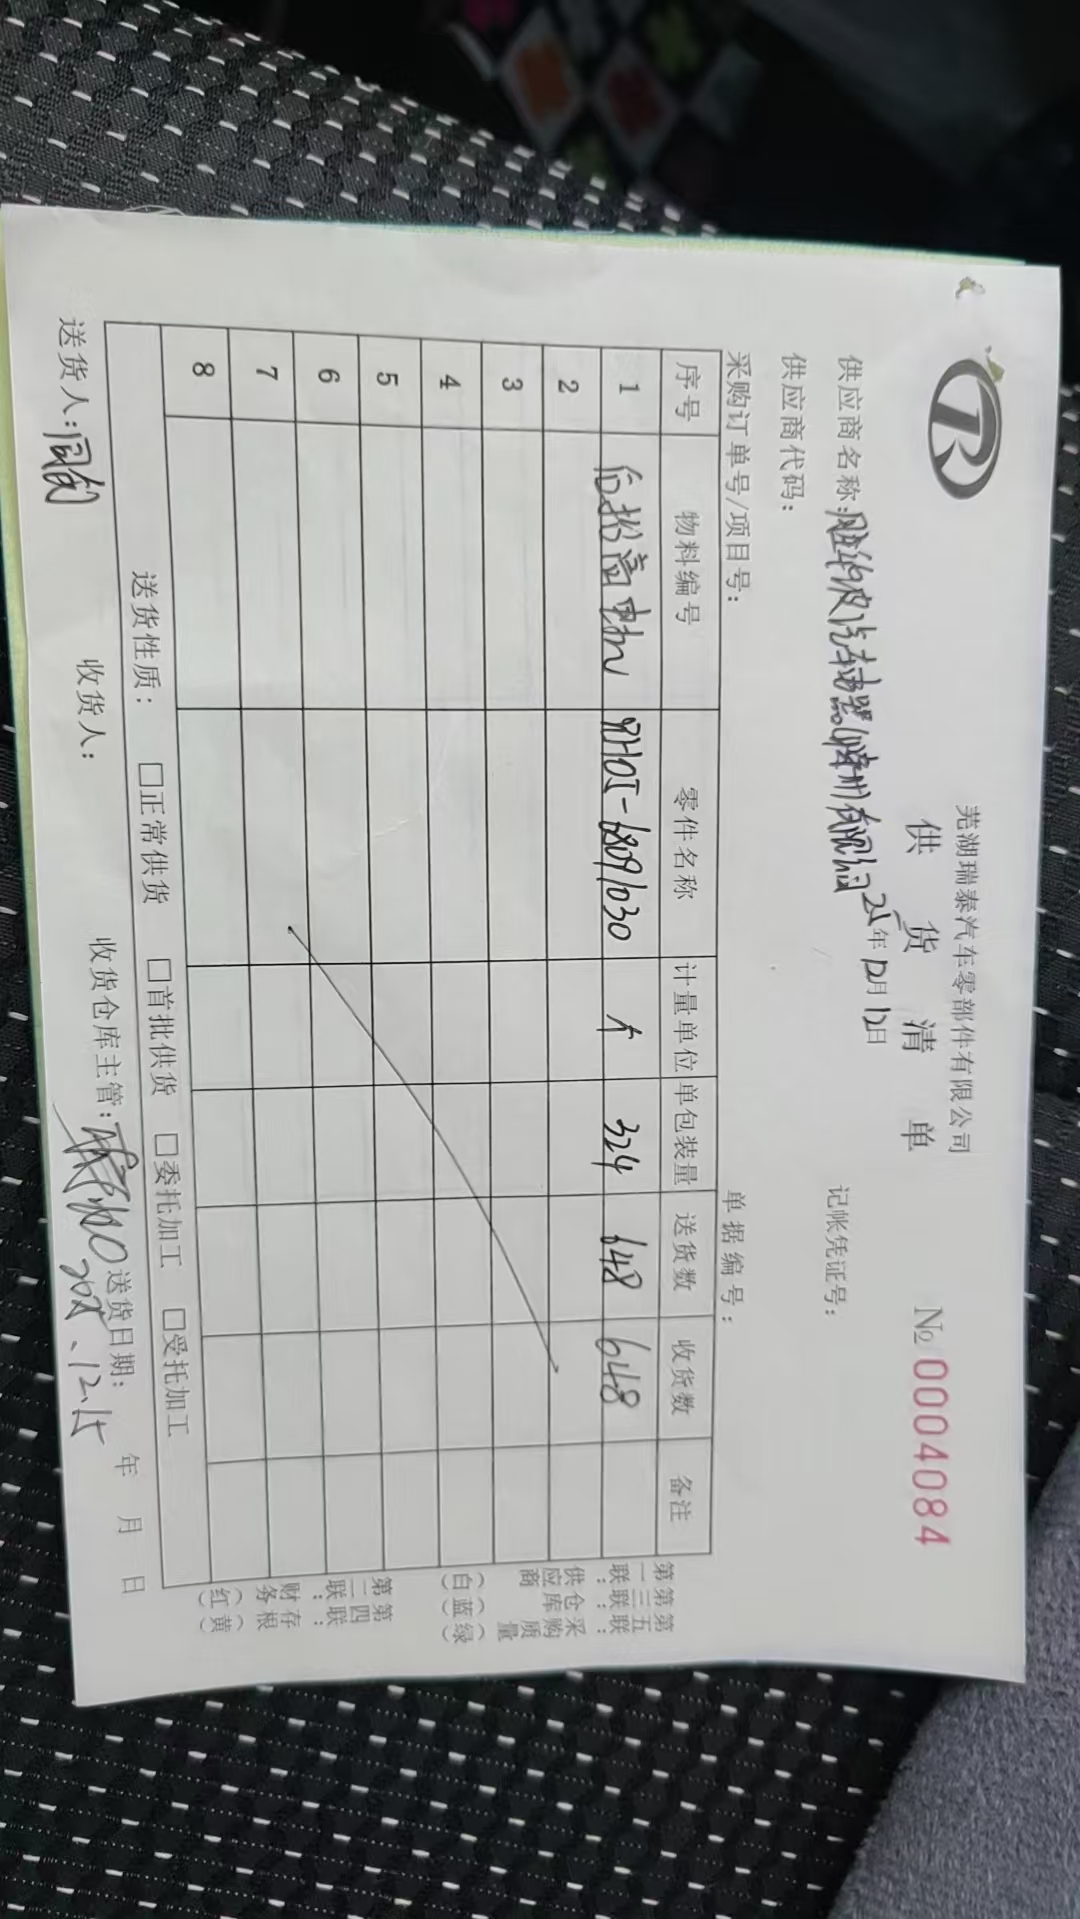 芜湖瑞泰汽车零部件有限公司
供货清单
№ 0004084
供应商名称: 汽车电器 25年12月12日 记帐凭证号:
供应商代码:
采购订单号/项目号: 单据编号:
序号 物料编号 零件名称 计量单位 单包装量 送货数 收货数 备注
1 后抬高电机 -6809030 个 324 648 648
2
3
4
5
6
7
8
送货性质: □正常供货 □首批供货 □委托加工 □受托加工
送货人: 收货人: 收货仓库主管: 送货日期: 年 月 日
12.15
第一联:供应商(白)
第三联:仓库(蓝)
第五联:采购质量(绿)
第二联:财务(红)
第四联:存根(黄)